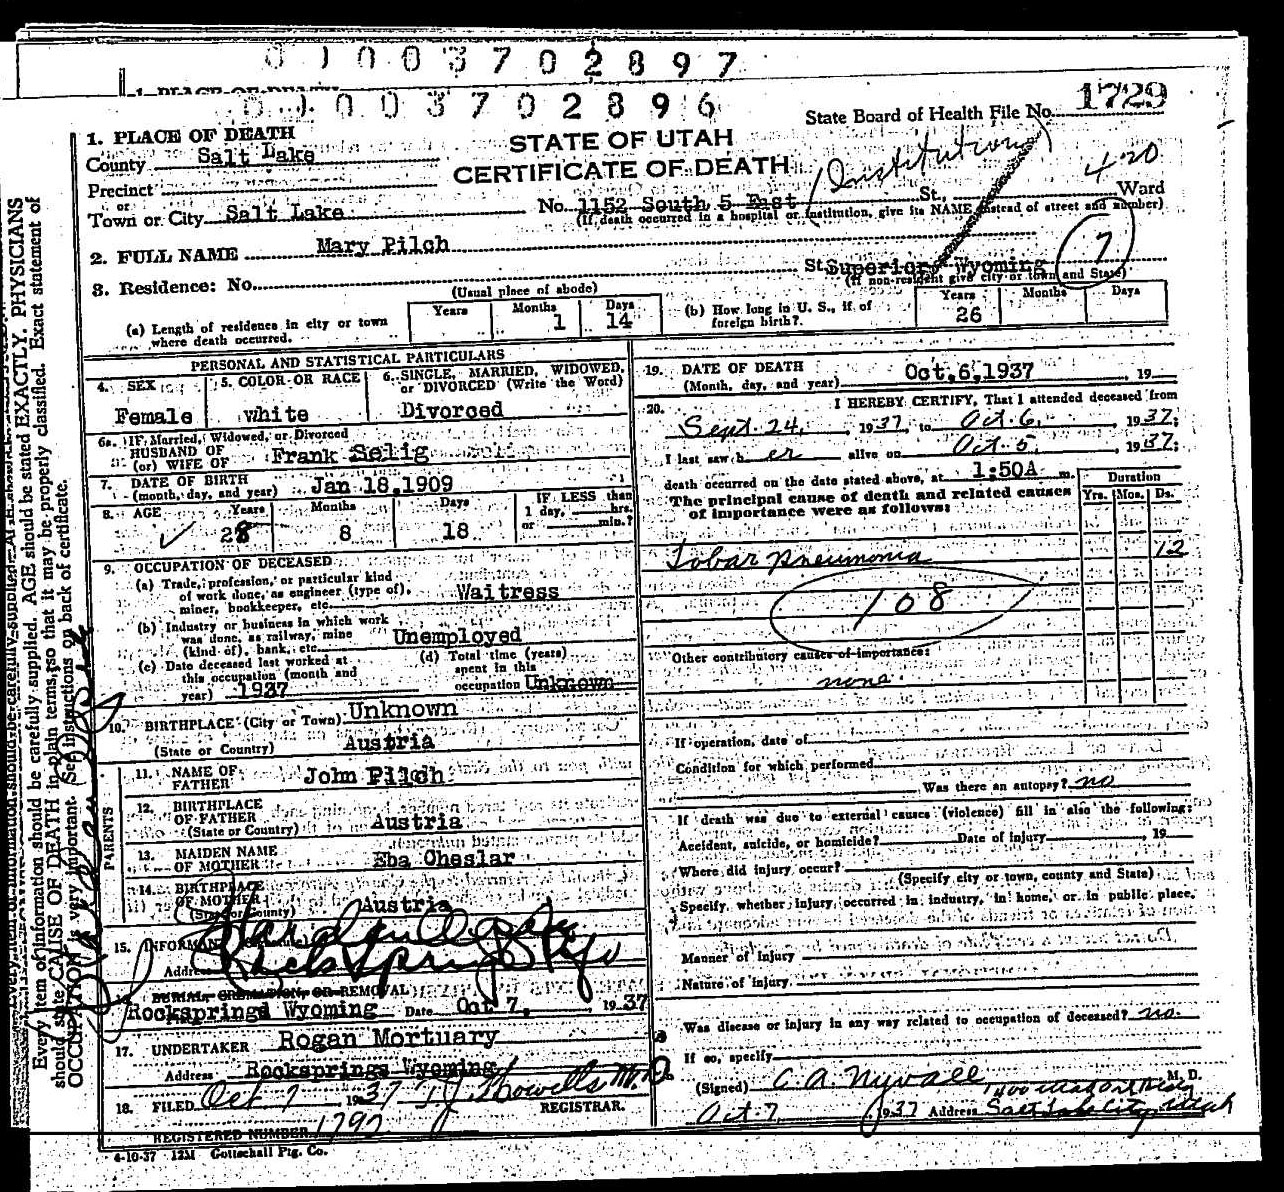 0 1 0 0 3 7 0 2 8 9 7
0 1 0 0 3 7 0 2 8 9 6
State Board of Health File No. 1729
1. PLACE OF DEATH
STATE OF UTAH
CERTIFICATE OF DEATH
County Salt Lake
Precinct
or
Town or City Salt Lake No. 1152 South 5 East (Institution) St., 420 Ward
(If death occurred in a hospital or institution, give its NAME instead of street and number)
2. FULL NAME Mary Pilch
3. Residence: No. St. Superior, Wyoming 7
(Usual place of abode) (If non-resident give city or town and State)
(a) Length of residence in city or town where death occurred. Years Months 1 Days 14
(b) How long in U. S., if of foreign birth? Years 26 Months Days
PERSONAL AND STATISTICAL PARTICULARS
4. SEX Female
5. COLOR OR RACE white
6. SINGLE, MARRIED, WIDOWED, or DIVORCED (Write the Word) Divorced
6a. IF Married, Widowed, or Divorced
HUSBAND OF
(or) WIFE OF Frank Selig
7. DATE OF BIRTH
(month, day, and year) Jan 18,1909
8. AGE Years 28 Months 8 Days 18 IF LESS than 1 day, hrs. or min.?
9. OCCUPATION OF DECEASED
(a) Trade, profession, or particular kind of work done, as engineer (type of), miner, bookkeeper, etc. Waitress
(b) Industry or business in which work was done, as railway, mine (kind of), bank, etc. Unemployed
(c) Date deceased last worked at this occupation (month and year) 1937
(d) Total time (years) spent in this occupation Unknown
10. BIRTHPLACE (City or Town) Unknown
(State or Country) Austria
PARENTS
11. NAME OF FATHER John Pilch
12. BIRTHPLACE OF FATHER
(State or Country) Austria
13. MAIDEN NAME OF MOTHER Eba Oheslar
14. BIRTHPLACE OF MOTHER
(State or County) Austria
15. INFORMANT
Address Rock Springs Wyo
BURIAL, CREMATION, OR REMOVAL
Rocksprings Wyoming Date Oct 7, 1937
17. UNDERTAKER Rogan Mortuary
Address Rocksprings Wyoming
18. FILED Oct 7 1937 T J Howells M.D.
REGISTRAR.
REGISTERED NUMBER 1797
4-10-37 12M Gottschall Ptg. Co.
19. DATE OF DEATH
(Month, day, and year) Oct,6,1937, 19
20. I HEREBY CERTIFY, That I attended deceased from
Sept. 24, 1937, to Oct. 6, 1937;
I last saw h er alive on Oct. 5, 1937;
death occurred on the date stated above, at 1:50A m.
The principal cause of death and related causes of importance were as follows:
Duration
Yrs. Mos. Ds.
Lobar pneumonia 12
108
Other contributory causes of importance:
none.
If operation, date of
Condition for which performed
Was there an autopsy? no
If death was due to external causes (violence) fill in also the following:
Accident, suicide, or homicide? Date of injury , 19
Where did injury occur?
(Specify city or town, county and State)
Specify, whether injury occurred in industry, in home, or in public place.
Manner of injury
Nature of injury
Was disease or injury in any way related to occupation of deceased? no.
If so, specify
(Signed) C A Nyvall M. D.
Oct. 7 1937 Address Salt Lake City, Utah
Every item of information should be carefully supplied. AGE should be stated EXACTLY. PHYSICIANS
should state CAUSE OF DEATH in plain terms, so that it may be properly classified. Exact statement of
OCCUPATION is very important. (See instructions on back of certificate.